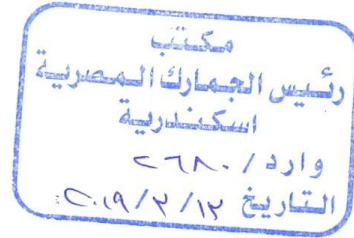 مكتب
رئيس الجمارك المصرية
اسكندرية
وارد / ٢٦٨٠
التاريخ ١٢ / ٣ / ٢٠١٩